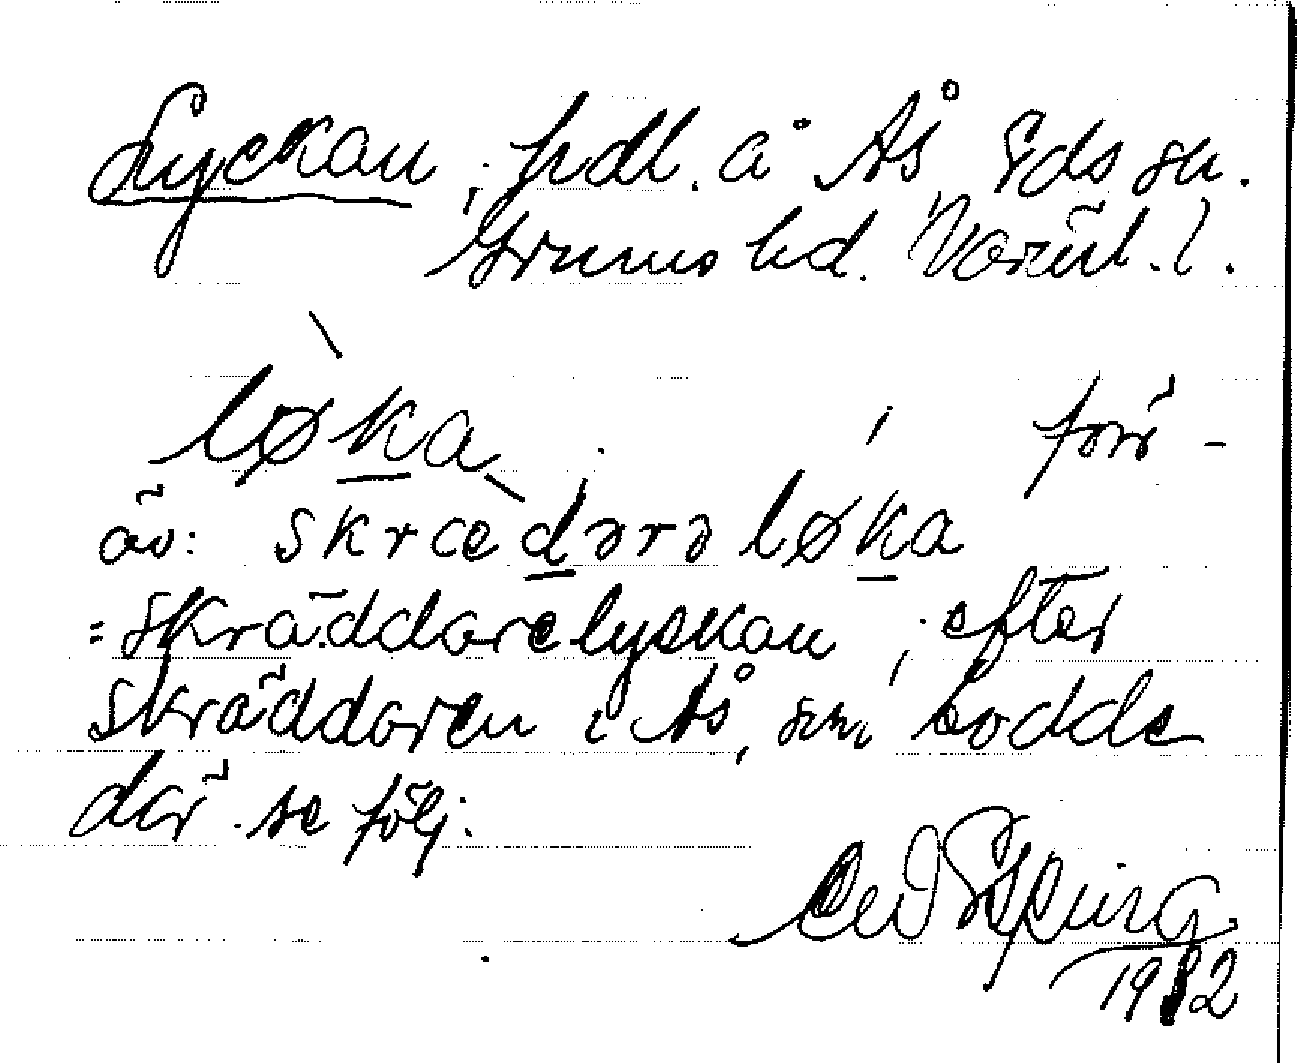 Lyckan, pdl. å Ås Eds sn.
Grums hd. Värml. l.
løka, förr
äv: skrædərəløka
= skräddarelyckan, efter
skräddaren i Ås, som bodde
där. se följ.
1912